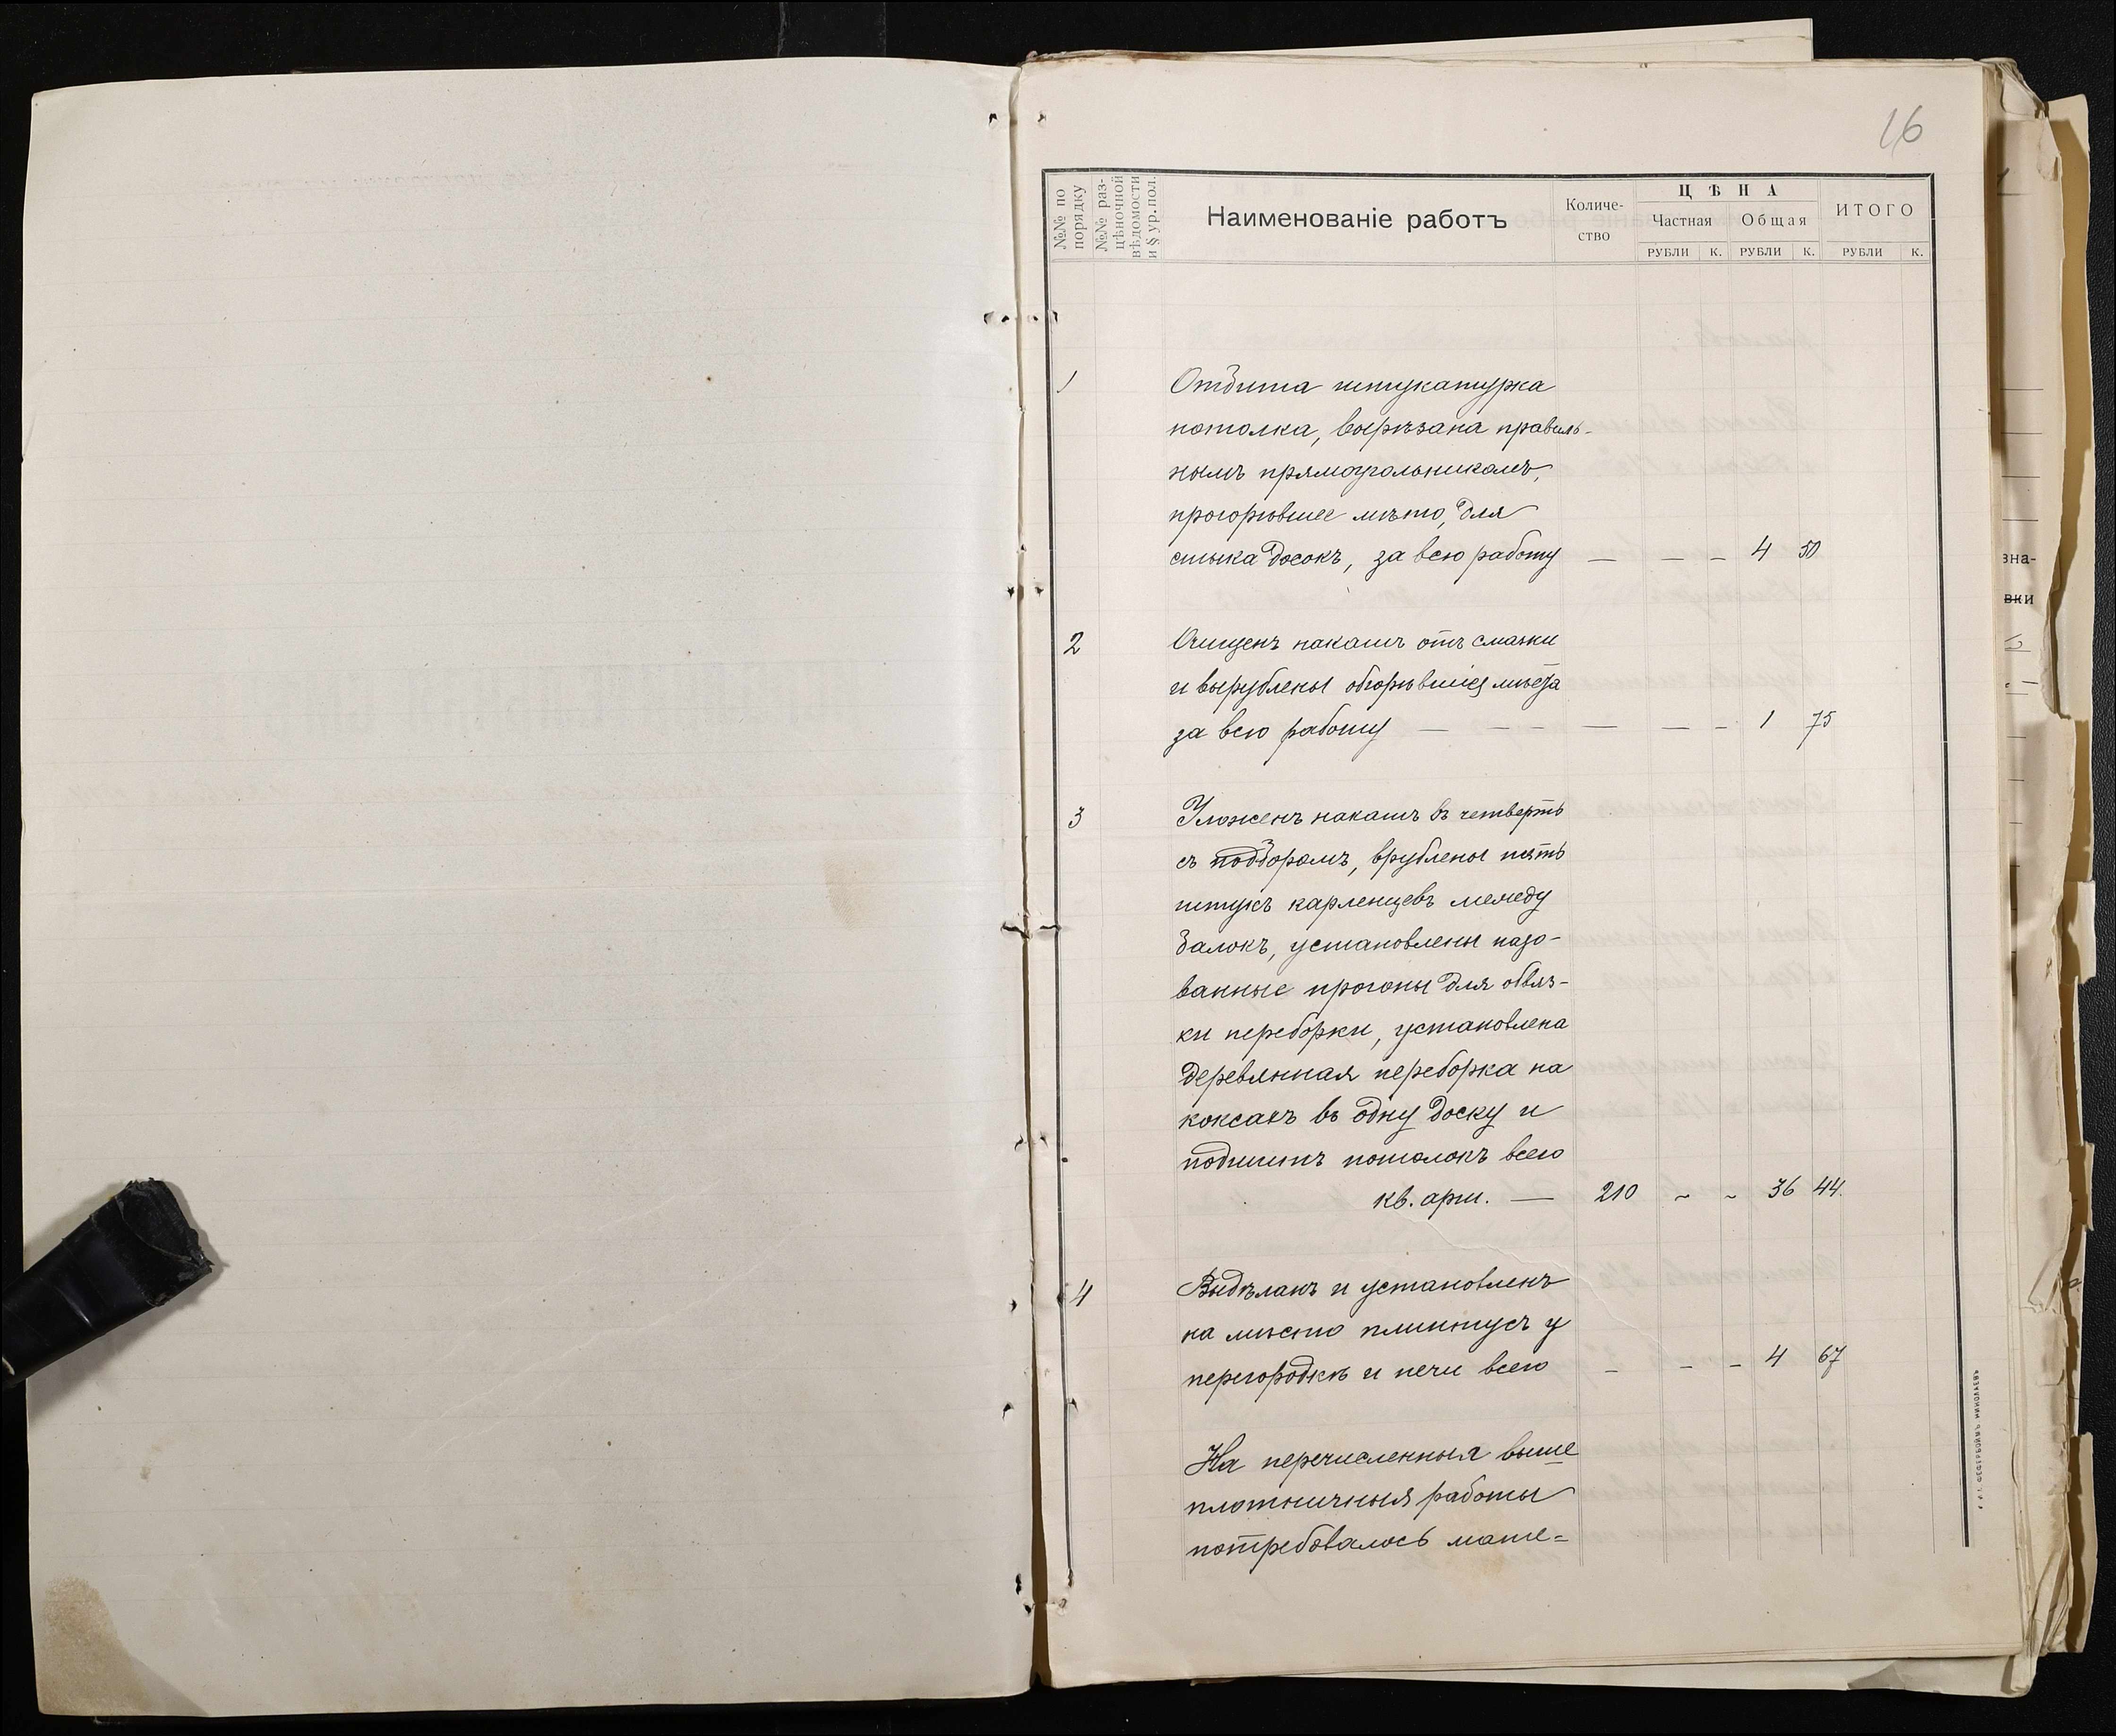 16
№№ по порядку
№№ раз-
цѣночной
вѣдомости
и § ур. пол.
Наименованіе работъ
Количе-
ство
ЦѢНА
Частная Общая
ИТОГО
РУБЛИ К. РУБЛИ К. РУБЛИ К.
1 Отбита штукатурка
потолка, вырѣзана правиль-
нымъ прямоугольникомъ,
прогорѣвшее мѣсто, для
стыка досокъ, за всю работу — — – 4 50
2 Очищенъ накатъ отъ смазки
и вырублены обгорѣвшіе мѣста
за всю работу — – – — — – 1 75
3 Уложенъ накатъ въ четверть
съ подборомъ, врублены пять
штукъ карленцевъ между
балокъ, установлены пазо-
ванные прогоны для обвяз-
ки переборки, установлена
деревянная переборка на
коксахъ въ одну доску и
подшитъ потолокъ всего
кв. арш. — 210 ~ ~ 36 44.
4 Выдѣланъ и установленъ
на мѣсто плинтусъ у
перегородкѣ и печи всего – – – 4 67
На перечисленныя выше
плотничныя работы
потребовалось мате=
зна-
вки